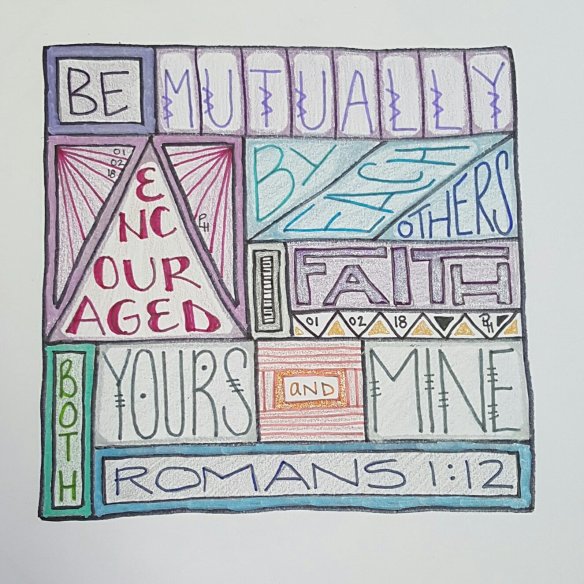 BE MUTUALLY
01
02
18
PH
E
NC
OUR
AGED
BY EACH OTHERS
FAITH
01 02 18 PH
BOTH
YOURS and MINE
ROMANS 1:12